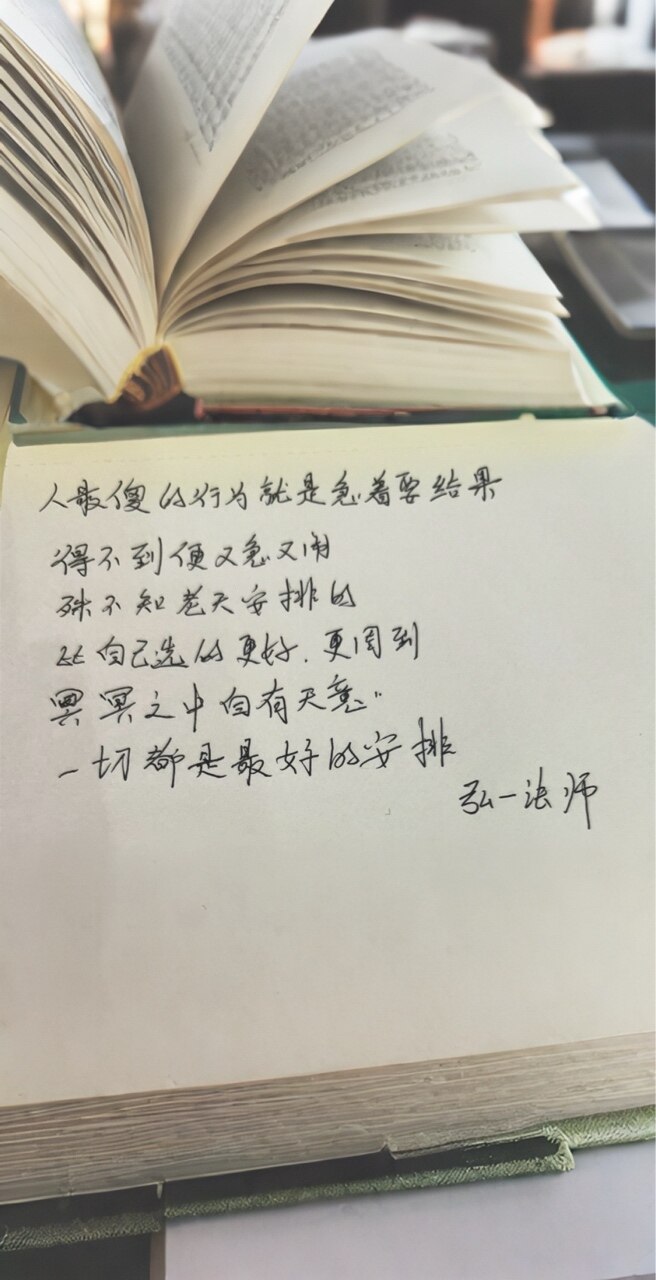 人最傻的行为就是急着要结果
得不到便又急又闹
殊不知老天安排的
比自己选的更好.更周到
冥冥之中自有天意"
一切都是最好的安排
弘一法师